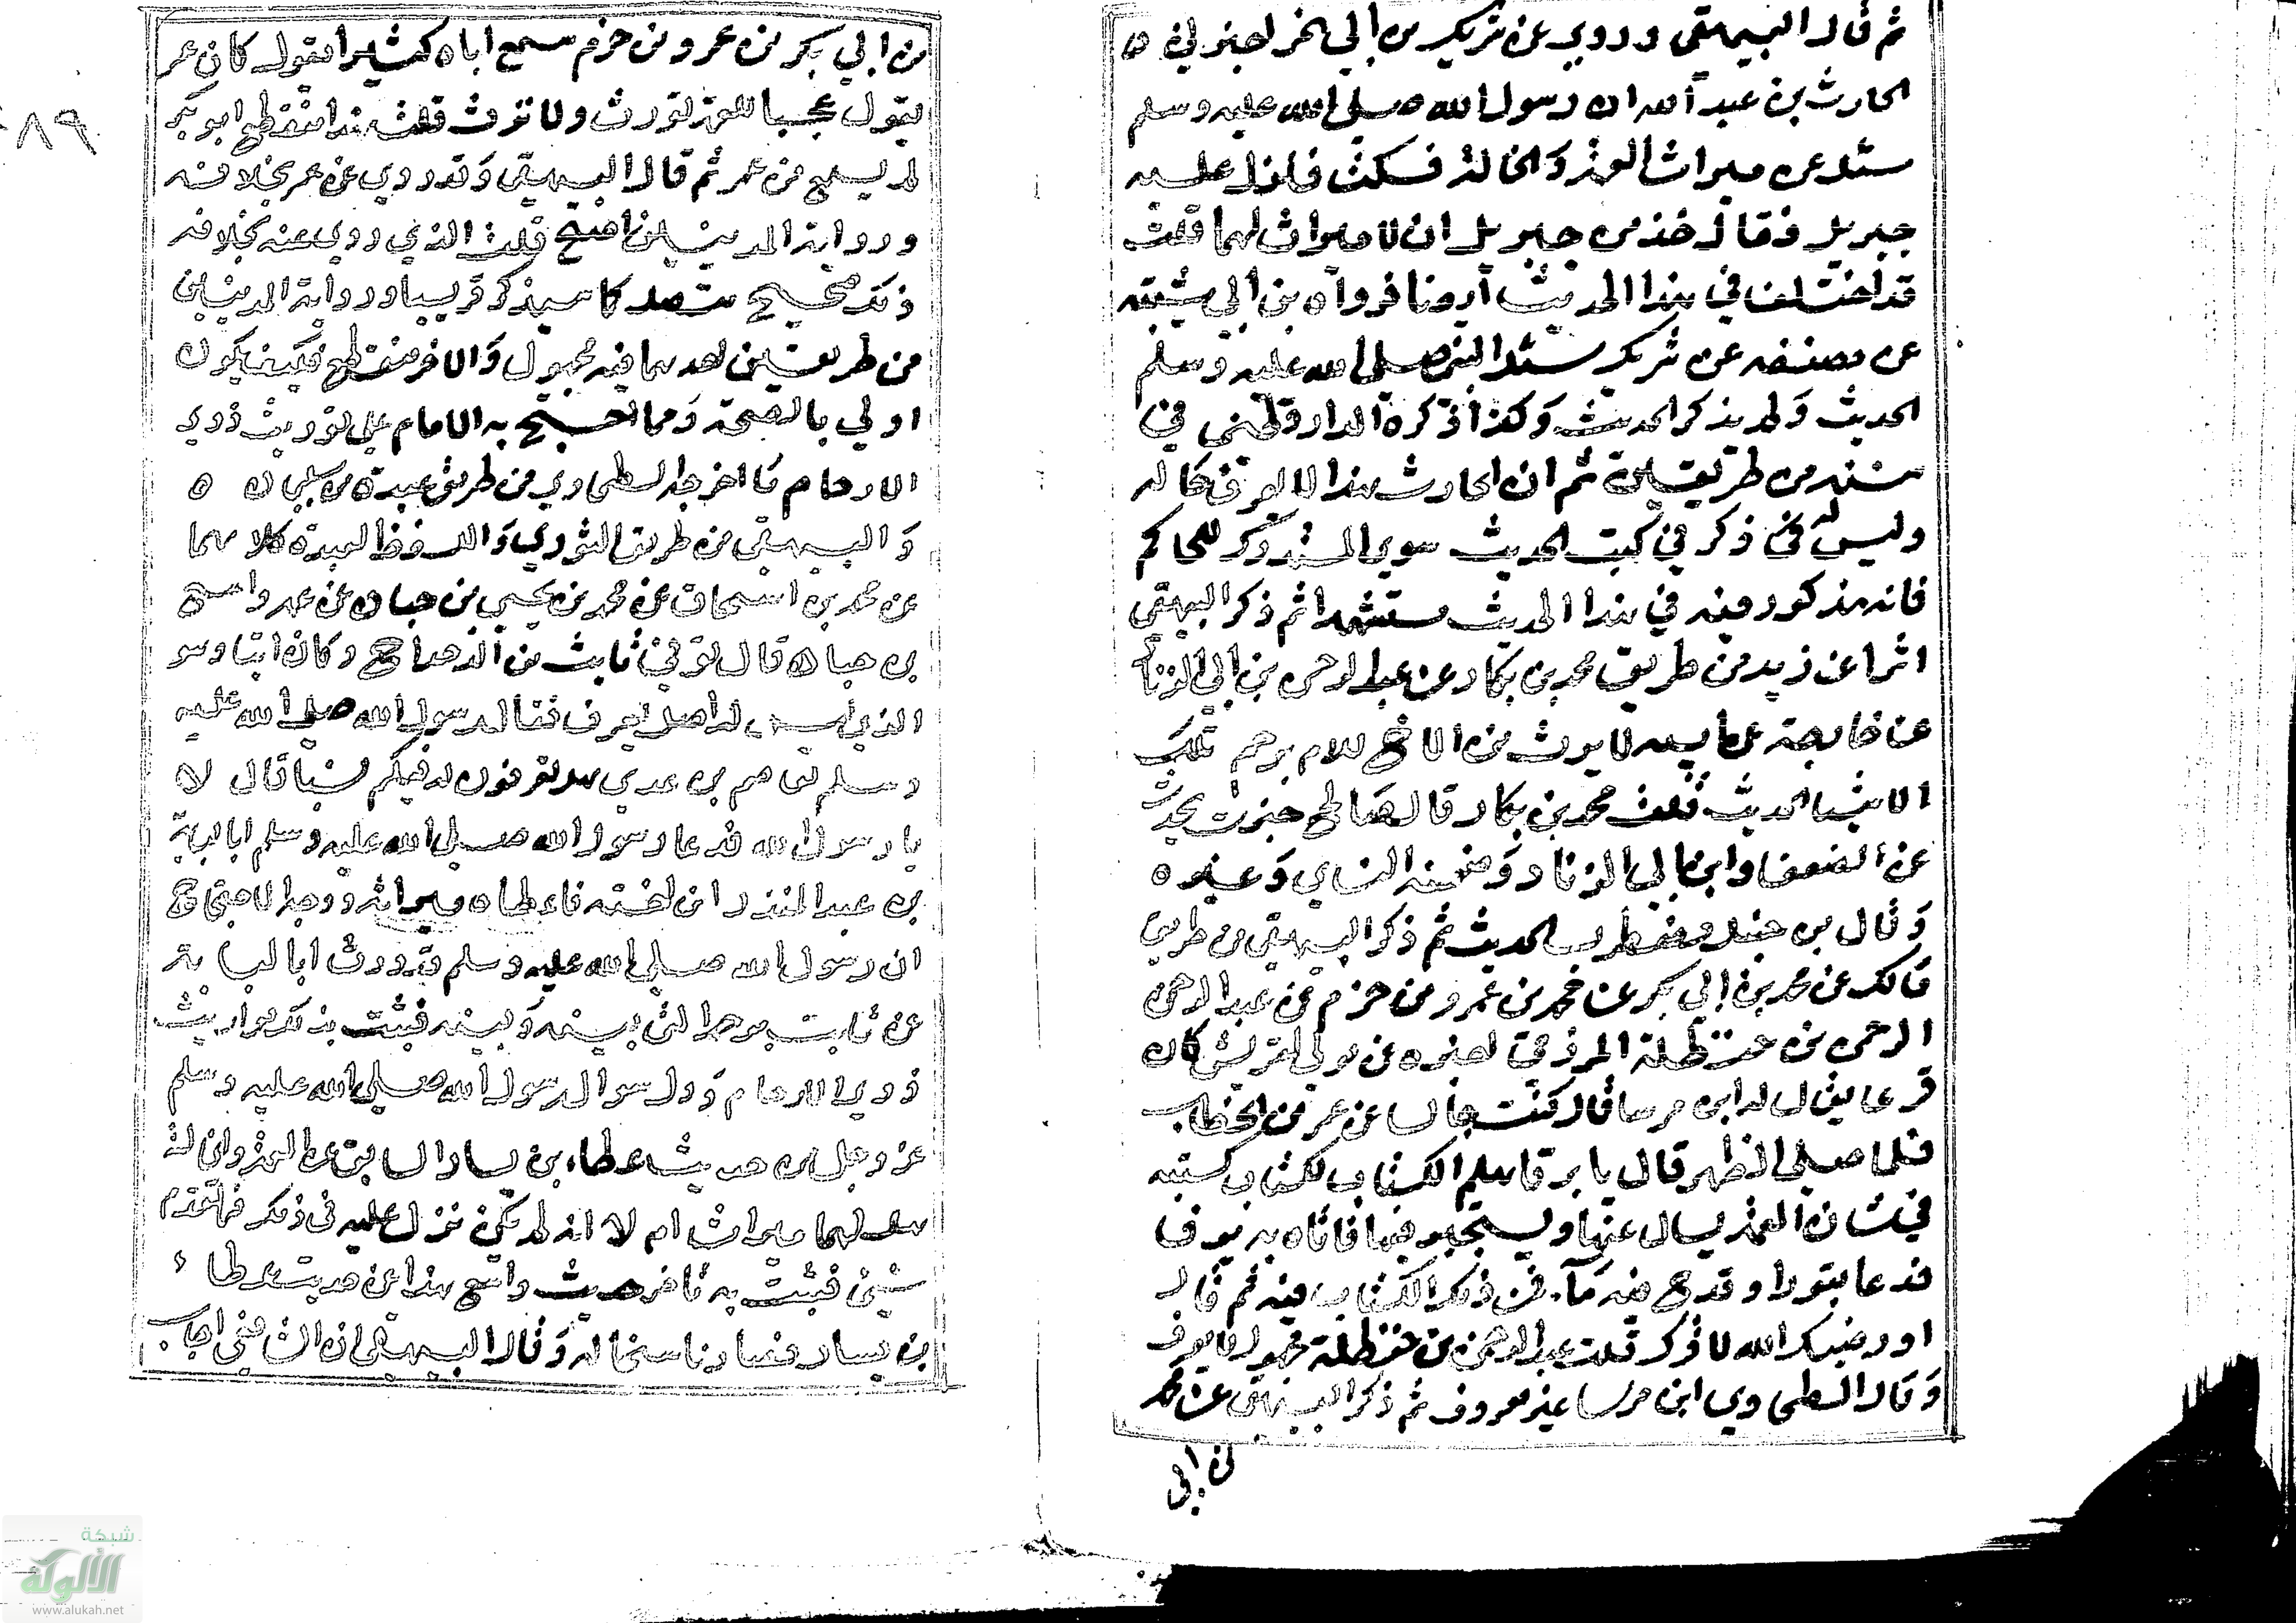 ثم قال البيهقي وروي عن شريك بن ابي نمر اخبرني ه
الحارث بن عبد الله ان رسول الله صلى الله عليه وسلم
سئل عن ميراث العمة والخالة فسكت فانزل عليه
جبريل فقال حدثني جبريل ان لا ميراث لهما قلت
قد اختلف في هذا الحديث ايضا فرواه بن ابي شيبة
عن مصنفه عن شريك سئل النبي صلى الله عليه وسلم
الحديث ولم يذكر الحديث وكذا ذكره الدارقطني في
سننه من طريقين ثم ان الحارث هذا لا يعرف حاله
وليس له ذكر في كتب الحديث سوى المستدرك للحاكم
فانه مذكور فيه في هذا الحديث مستشهدا ثم ذكر البيهقي
اثرا عن زيد من طريق محمد بن بكار عن عبد الرحمن بن ابي الزناد
عن خارجة عن ابيه لا يرث بن الاخ للام برحم تلك
الاشيا الحديث قلت محمد بن بكار قال صالح جزرة يحدث
عن الضعفا وابن ابي الزناد وضعفه النساي وغيره
وقال بن حنبل مضطرب الحديث ثم ذكر البيهقي من طريق
مالك عن محمد بن ابي بكر عن محمد بن عمرو بن حزم عن عبد الرحمن
الرحمن بن حنظلة الزرقي اخبره عن مولى لقريش كان
قديما يقال له ابن مرسا قال كنت جالسا عن عمر بن الخطاب
فلما صلى الظهر قال يا يرفا هلم الكتاب لكتاب كتبه
في شان العمة يسال عنها ويستخبر فيها فاتاه به يرفا
فدعا بتور او قدح فيه ماء فمحى ذلك الكتاب فيه ثم قال
لو رضيك الله لاقرك قلت عبد الرحمن بن حنظلة مجهول لا يعرف
وقال الطحاوي ابن مرسا غير معروف ثم ذكر البيهقي عن محمد
بن ابي
٨٩
بن ابي بكر بن عمرو بن حزم سمع اباه كثيرا يقول كان عمر
يقول عجبا للعمة تورث ولا ترث قلت هذا منقطع ابو بكر
لم يسمع من عمر ثم قال البيهقي وقد روي عن عمر بخلافه
ورواية المدنيين اصح قلت الذي روي عنه بخلافه
ذلك صحيح متصل كما سيذكر قريبا ورواية المدنيين
من طريقين احدهما فيه مجهول والاخر منقطع فكيف يكون
اولي بالصحة ومما احتج به الامام على توريث ذوي
الارحام ما اخرجه الطحاوي من طريق عبدة بن سليمان ه
والبيهقي من طريق الثوري واللفظ لعبدة كلاهما
عن محمد بن اسحاق عن محمد بن يحيي بن حبان عن عمه واسع
بن حبان قال توفي ثابت بن الدحداح وكان اتيا وهو
الذي ليس له اصل يعرف فقال رسول الله صلى الله عليه
وسلم لعاصم بن عدي هل تعرفون له فيكم نسبا قال لا
يا رسول الله فدعا رسول الله صلى الله عليه وسلم ابا لبابة
بن عبد المنذر ابن اخته فاعطاه ميراثه ووجه الاحتجاج
ان رسول الله صلى الله عليه وسلم قد ورث ابا لبابة
من ثابت برحمه التي بينه وبينه فثبت بذلك مواريث
ذوي الارحام ودل سوال رسول الله صلى الله عليه وسلم
عز وجل في حديث عطاء بن يسار السابق عن العمة والخالة
هل لهما ميراث ام لا انه لم يكن نزل عليه في ذلك فيما تقدم
شيئ فثبت به تاخر حديث واسع هذا عن حديث عطاء
بن يسار فصار ناسخا له وقال البيهقي ان الشافعي اجاب
شبكة
الألوكة
www.alukah.net